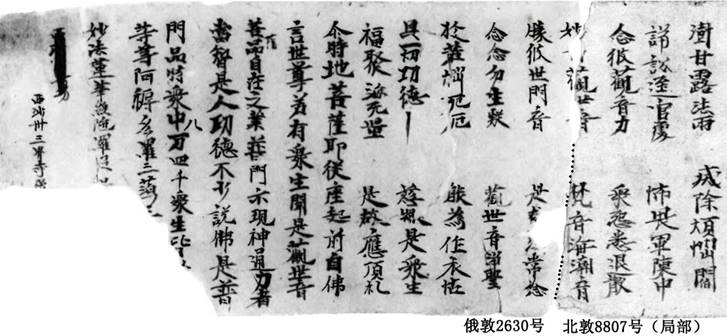 澍甘露法雨 戒除煩惱閻
諍訟逕官處 怖畏軍陳中
念彼觀音力 衆惡悉退散
妙 觀世音 梵音海潮音
勝彼世間音 是 常念
念念勿生疑 觀世音淨聖
於苦惱死厄 能為作衣怙
具一切功德 慈眼是衆生
福聚海无量 是故應頂礼
尒時地菩薩即從座起前白佛
言世尊若有衆生聞是觀世音
菩薩品自在之業普門示現神通力者
當智是人功德不少說佛是普
門品時衆中八万四千衆生皆
等等阿耨多羅三藐
妙法蓮華經陁羅尼
卅三 寺
俄敦2630号 北敦8807号（局部）